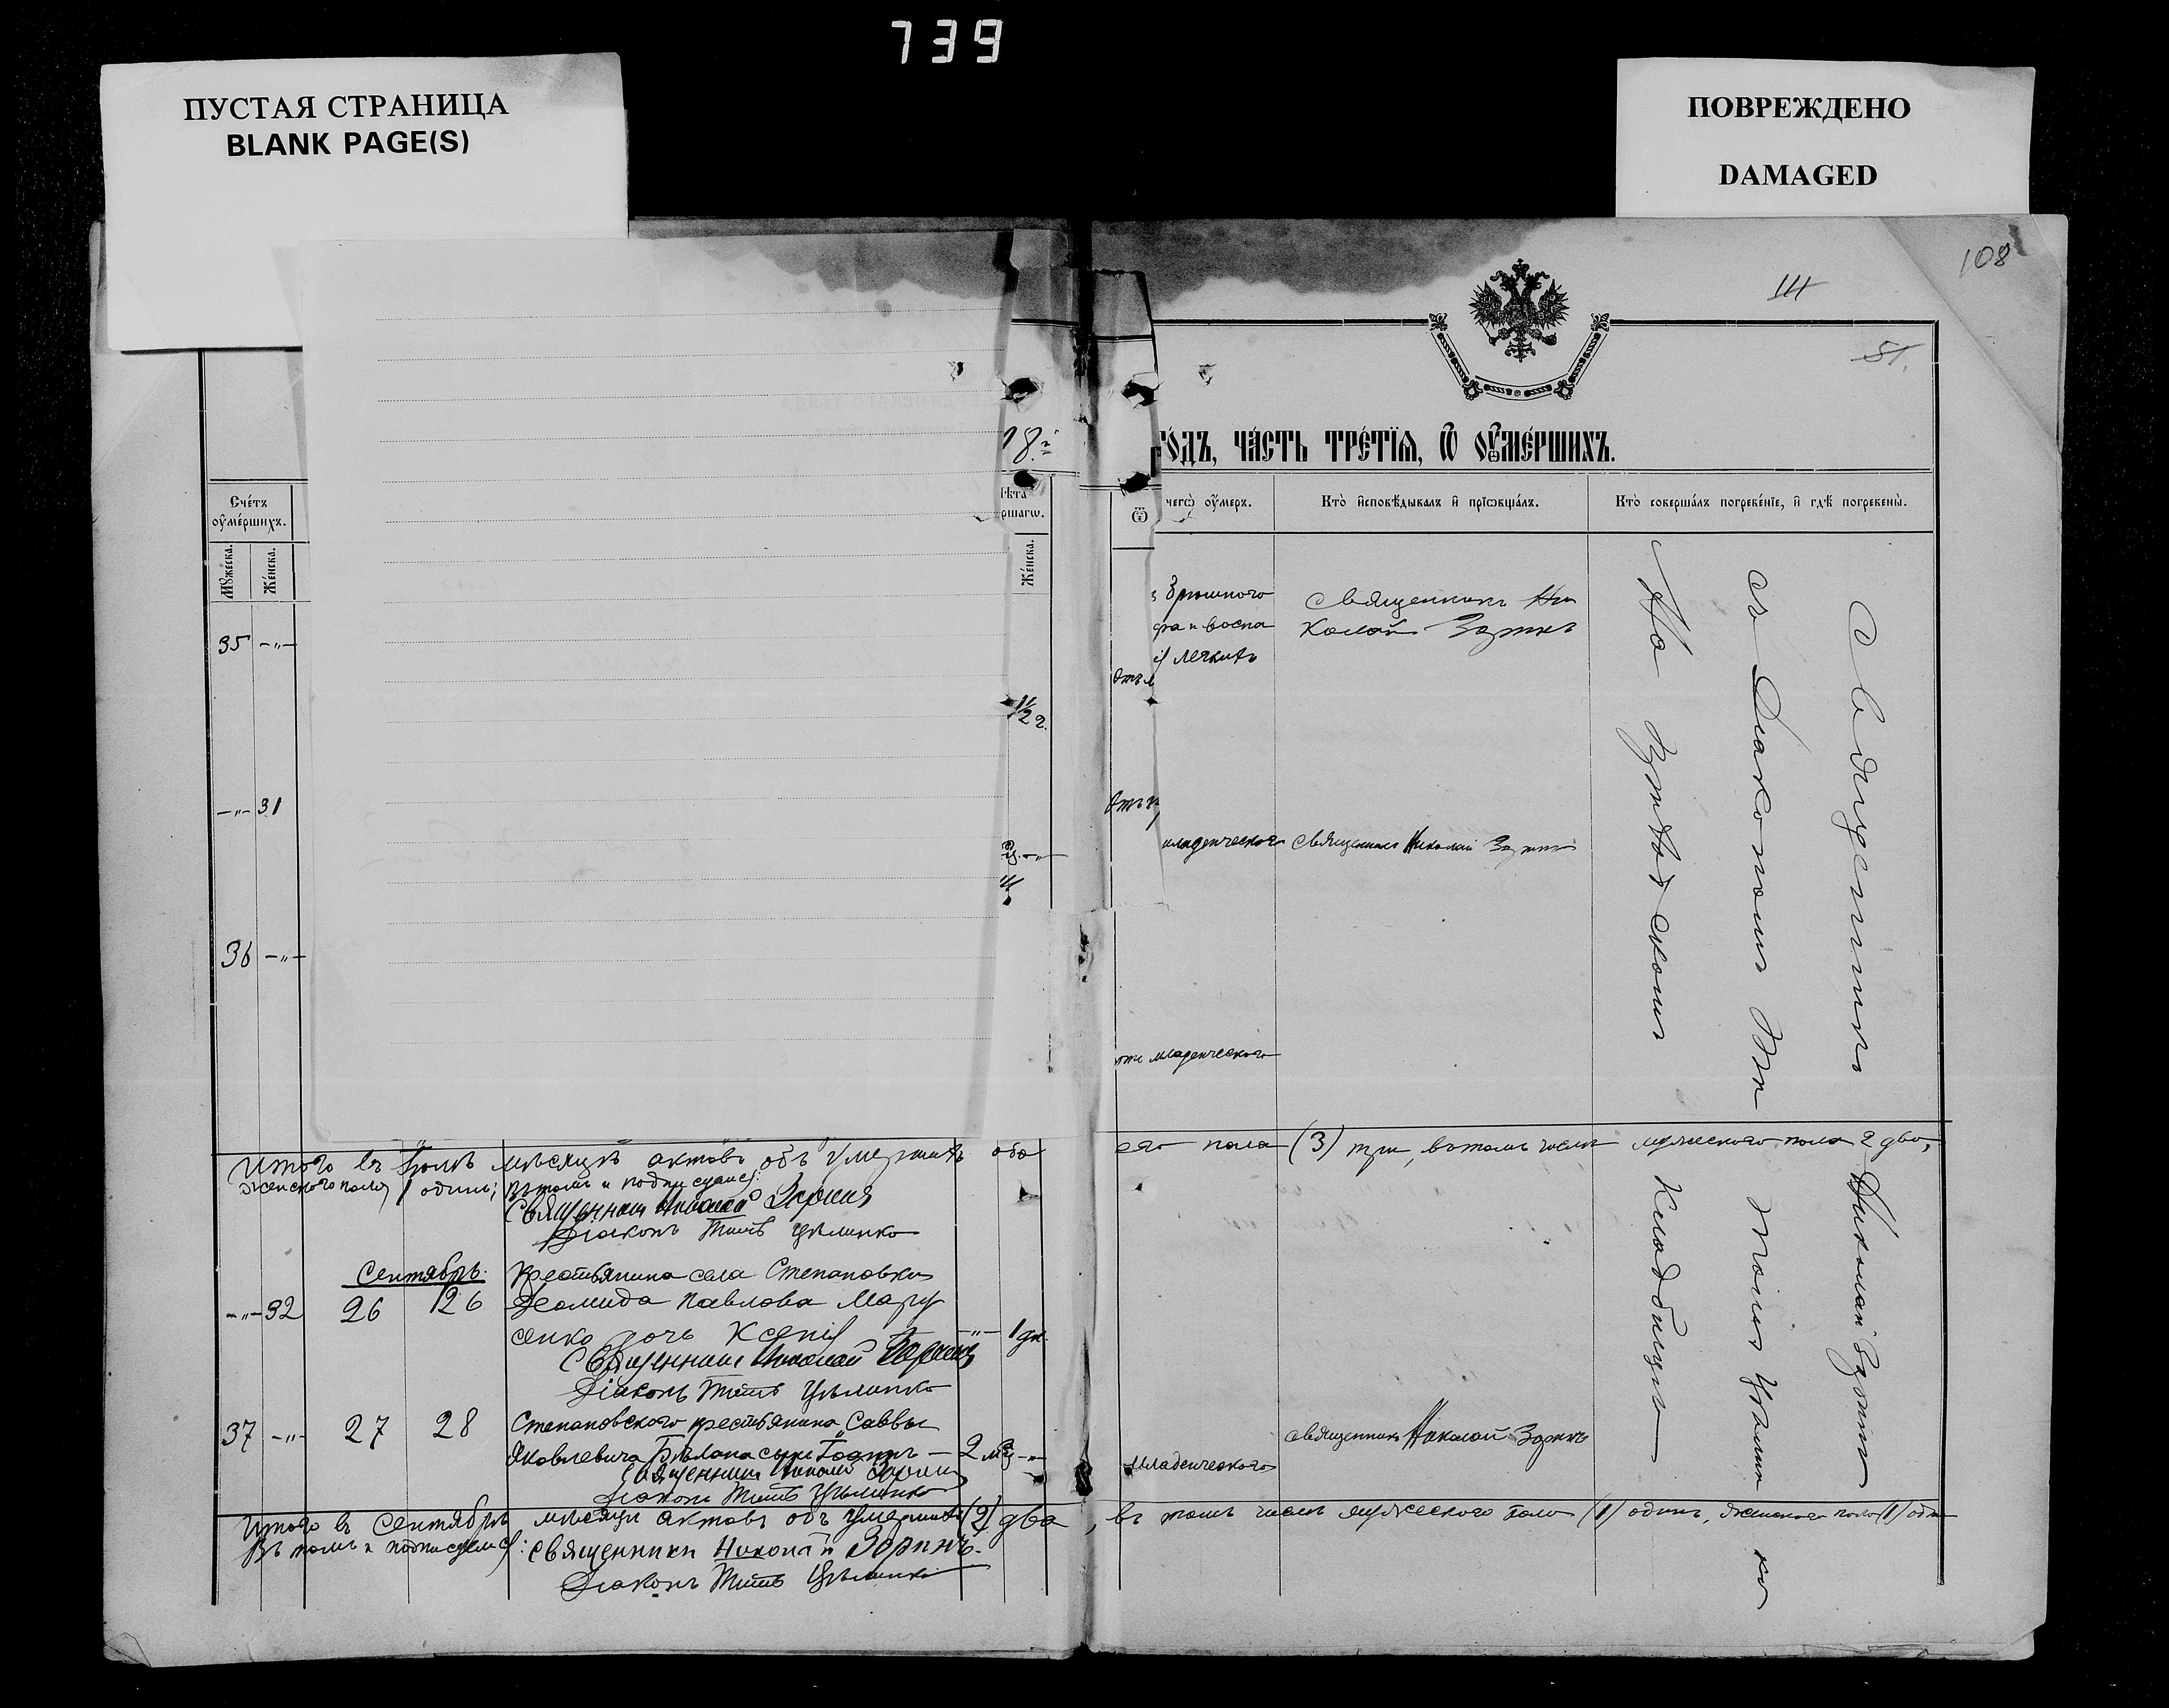 739
ПУСТАЯ СТРАНИЦА
BLANK PAGE(S)
ПОВРЕЖДЕНО
DAMAGED
108
111
51.
18
го́дъ, ча́сть тре́тїѧ, ѡ҆ ᲂу҆ме́ршихъ.
Сче́тъ
ᲂу҆ме́ршихъ.
Мꙋ́жеска.
Же́нска.
Же́нска.
чегѡ̀ ᲂу҆́меръ.
Кто̀ и҆сповѣ́дывалъ и҆ прїѡбща́лъ.
Кто̀ соверша́лъ погребе́нїе, и҆ гдѣ̀ погребены̀.
35 -"-
-"- 31
36 -"-
1/2 г.
Брюшного
и воспа
легкихъ
Священникъ Ни
колай Зоринъ
младенческого
Священникъ Николай Зоринъ
младенческого
Священникъ Николай Зоринъ
съ Діакономъ Титомъ Цѣлинко
На кладбищѣ
Итого въ Іюлѣ мѣсяцѣ актовъ объ умершихъ обо
его пола (3) три, въ томъ числѣ мужеского пола 2 два,
женского пола 1 одинъ; въ томъ и подписуемся:
Священникъ Николай Зоринъ
Діаконъ Титъ Цѣлинко
Сентябрь.
-"- 32 26 26
Крестьянина села Степановки
Деомида Павлова Мару
сенко дочь Ксенія -"- 1 дн.
Священникъ Николай Зоринъ
Діаконъ Титъ Цѣлинко
37 -"- 27 28
Степановского крестьянина Саввы
Яковлевича Бѣлана сынъ Іоаннъ — 2 мц -"-
Священникъ Николай Зоринъ
Діаконъ Титъ Цѣлинко
младенческого
Священникъ Николай Зоринъ
Итого въ Сентябрѣ мѣсяцѣ актовъ объ умершихъ (2) два, въ томъ числѣ мужеского пола (1) одинъ, женского пола (1) одинъ
Въ томъ и подписуемся: Священникъ Николай Зоринъ.
Діаконъ Титъ Цѣлинко